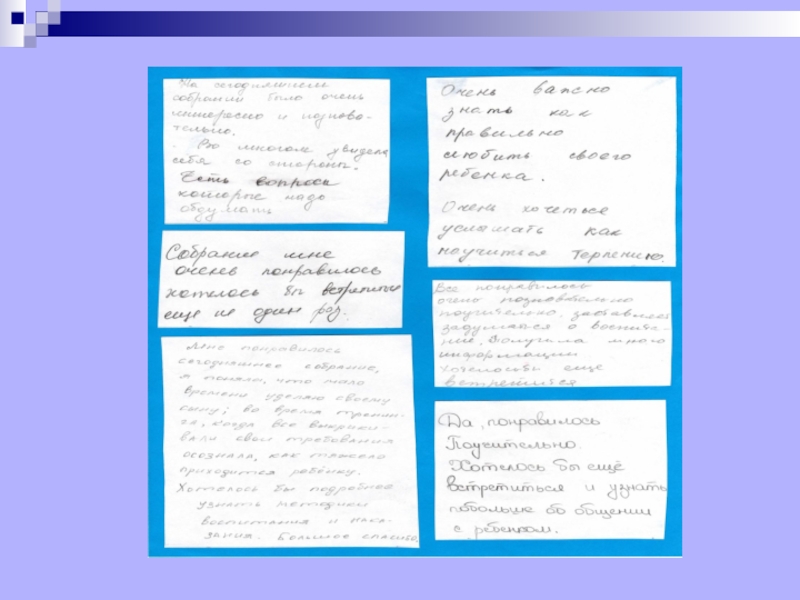 На сегодняшнем
собрании было очень
интересно и познова-
тельно.
Во многом увидела
себя со стороны.
Есть вопросы
которые надо
обдумать
Собрание мне
очень понравилось
хотелось бы встретится
еще не один раз.
Мне понравилось
сегодняшнее собрание,
я поняла, что мало
времени уделяю своему
сыну; во время тренин-
га, когда все выкрики-
вали свои требования
осознала, как тяжело
приходится ребёнку.
Хотелось бы подробнее
узнать методики
воспитания и нака-
зания. Большое спасибо
Очень важно
знать как
правильно
любить своего
ребенка.
Очень хочеться
услышать как
научиться терпению.
Все понравилось
очень познавательно
поучительно, заставляет
задуматся о воспита-
нии, Получила много
информации
Хотелось бы ещё
встретится
Да, понравилось
Поучительно.
Хотелось бы ещё
встретиться и узнать
побольше об общении
с ребенком.